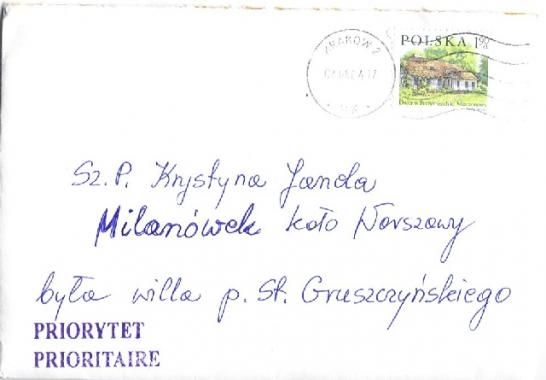 KRAKÓW 2
POLSKA 1
Sz. P. Krystyna Janda
Milanówek koło Warszawy
była willa p. St. Gruszczyńskiego
PRIORYTET
PRIORITAIRE